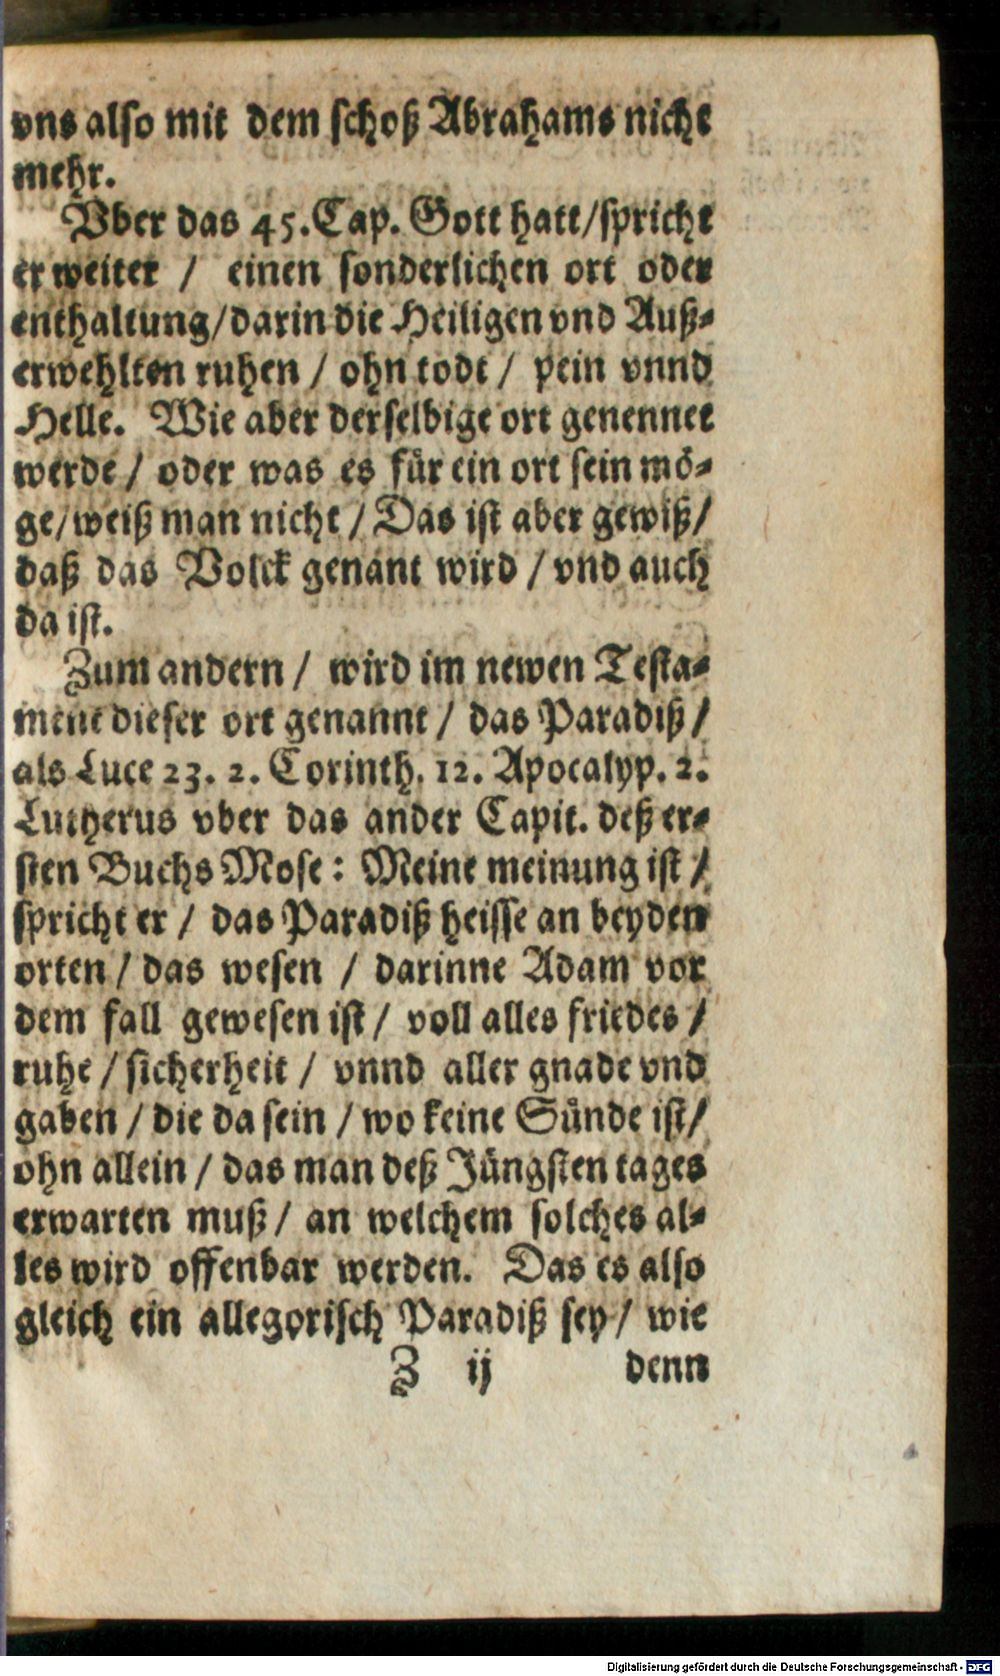 vns also mit dem schoß Abrahams nicht
mehr.
Vber das 45. Cap. Gott hatt/spricht
er weiter / einen sonderlichen ort oder
enthaltung/darin die Heiligen vnd Auß-
erwehlten ruhen / ohn todt / pein vnnd
Helle. Wie aber derselbige ort genennet
werde / oder was es für ein ort sein mö-
ge/weiß man nicht / Das ist aber gewiß/
daß das Volck genant wird / vnd auch
da ist.
Zum andern / wird im newen Testa-
ment dieser ort genannt / das Paradiß /
als Luce 23. 2. Corinth. 12. Apocalyp. 2.
Lutherus vber das ander Capit. deß er-
sten Buchs Mose: Meine meinung ist /
spricht er / das Paradiß heisse an beyden
orten / das wesen / darinne Adam vor
dem fall gewesen ist / voll alles friedes /
ruhe / sicherheit / vnnd aller gnade vnd
gaben / die da sein / wo keine Sünde ist/
ohn allein / das man deß Jüngsten tages
erwarten muß / an welchem solches al-
les wird offenbar werden. Das es also
gleich ein allegorisch Paradiß sey / wie
Z ij denn
Digitalisierung gefördert durch die Deutsche Forschungsgemeinschaft - DFG